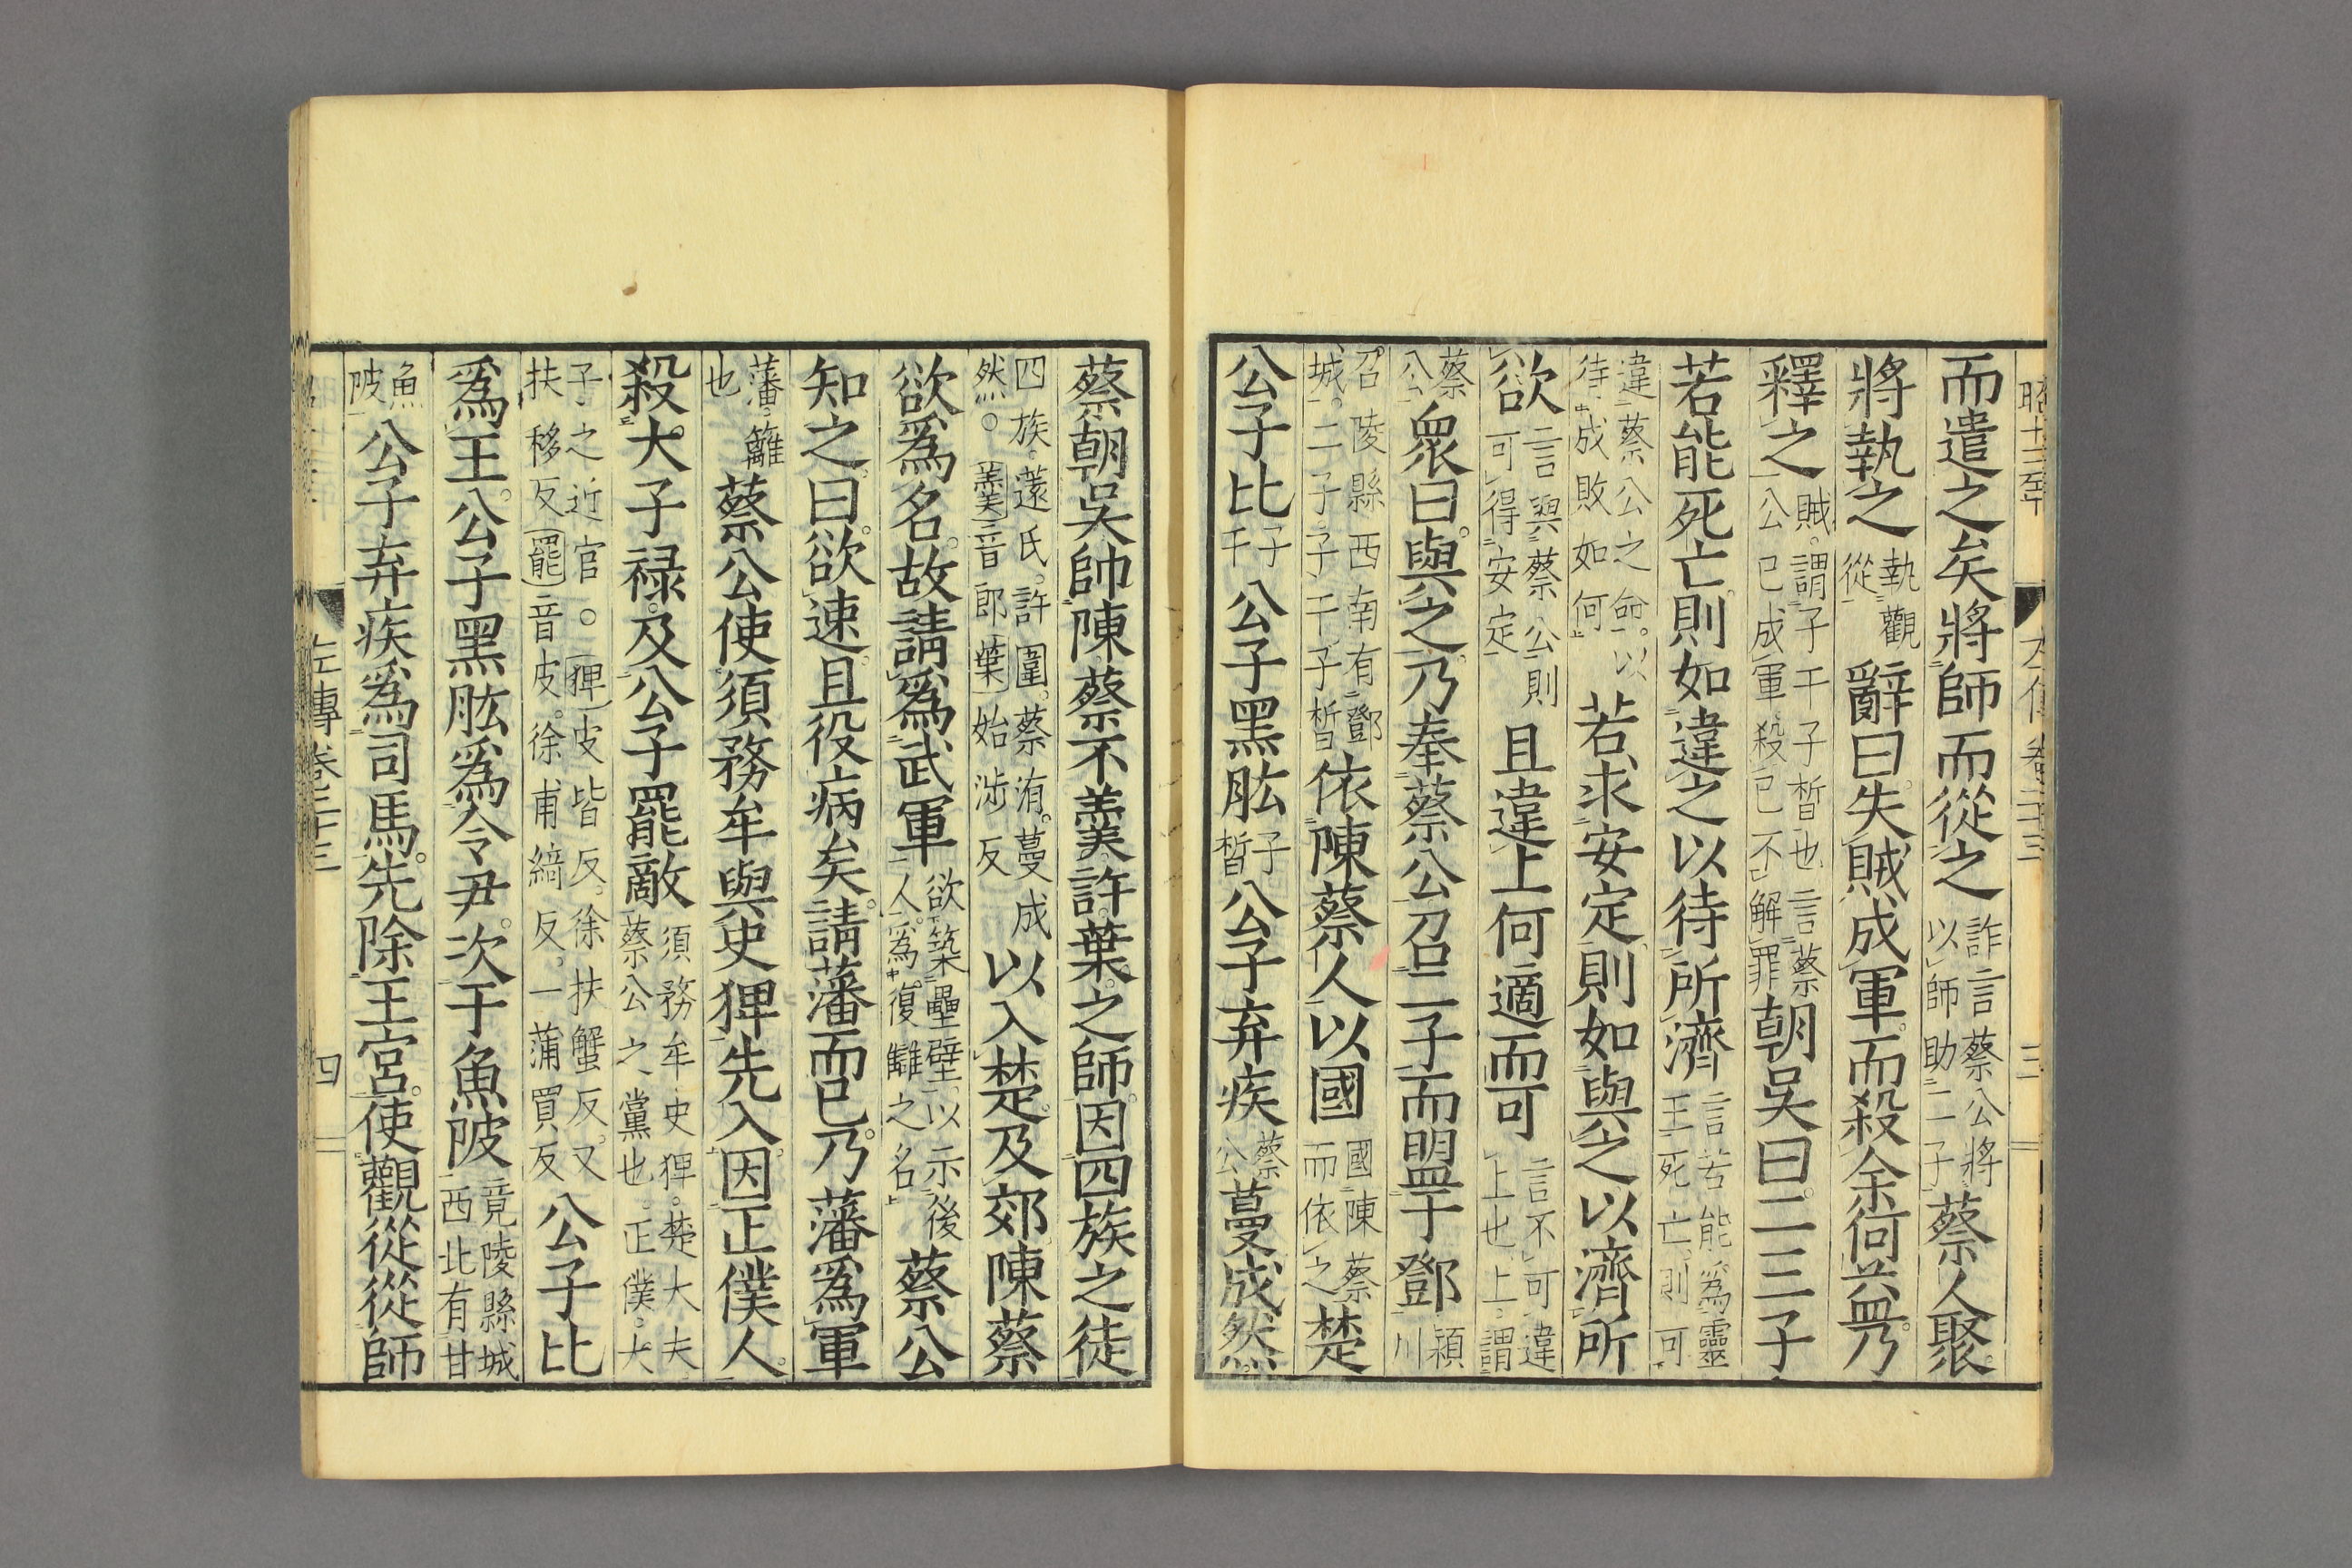 昭十三年
左傳卷二十三
三
而遣之矣將師而從之詐言蔡公將以師助二子蔡人聚
將執之執觀從辭曰失賊成軍而殺余何益乃
釋之賊謂子干子晳也言蔡公已成軍殺已不解罪朝吳曰二三子
若能死亡則如違之以待所濟言若能爲靈王死亡則可
違蔡公之命以待成敗如何若求安定則如與之以濟所
欲言與蔡公則可得安定且違上何適而可言不可違上也上謂
蔡公衆曰與之乃奉蔡公召二子而盟于鄧潁川
召陵縣西南有鄧城二子子干子晳依陳蔡人以國國陳蔡而依之楚
公子比子干公子黑肱子晳公子弃疾蔡公蔓成然
蔡朝吳帥陳蔡不羹許葉之師因四族之徒
四族薳氏許圍蔡洧蔓成然○羹音郎葉始涉反以入楚及郊陳蔡
欲爲名故請爲武軍欲築壘壁以示後人爲復讎之名蔡公
知之曰欲速且役病矣請藩而已乃藩爲軍
藩籬也蔡公使須務牟與史猈先入因正僕人
殺大子祿及公子罷敵須務牟史猈楚大夫蔡公之黨也正僕大
子之近官○猈皮皆反徐扶蟹反又扶移反罷音皮徐甫綺反一蒲買反公子比
爲王公子黑肱爲令尹次于魚陂竟陵縣城西北有甘
魚陂公子弃疾爲司馬先除王宮使觀從從師
左傳卷二十三
四